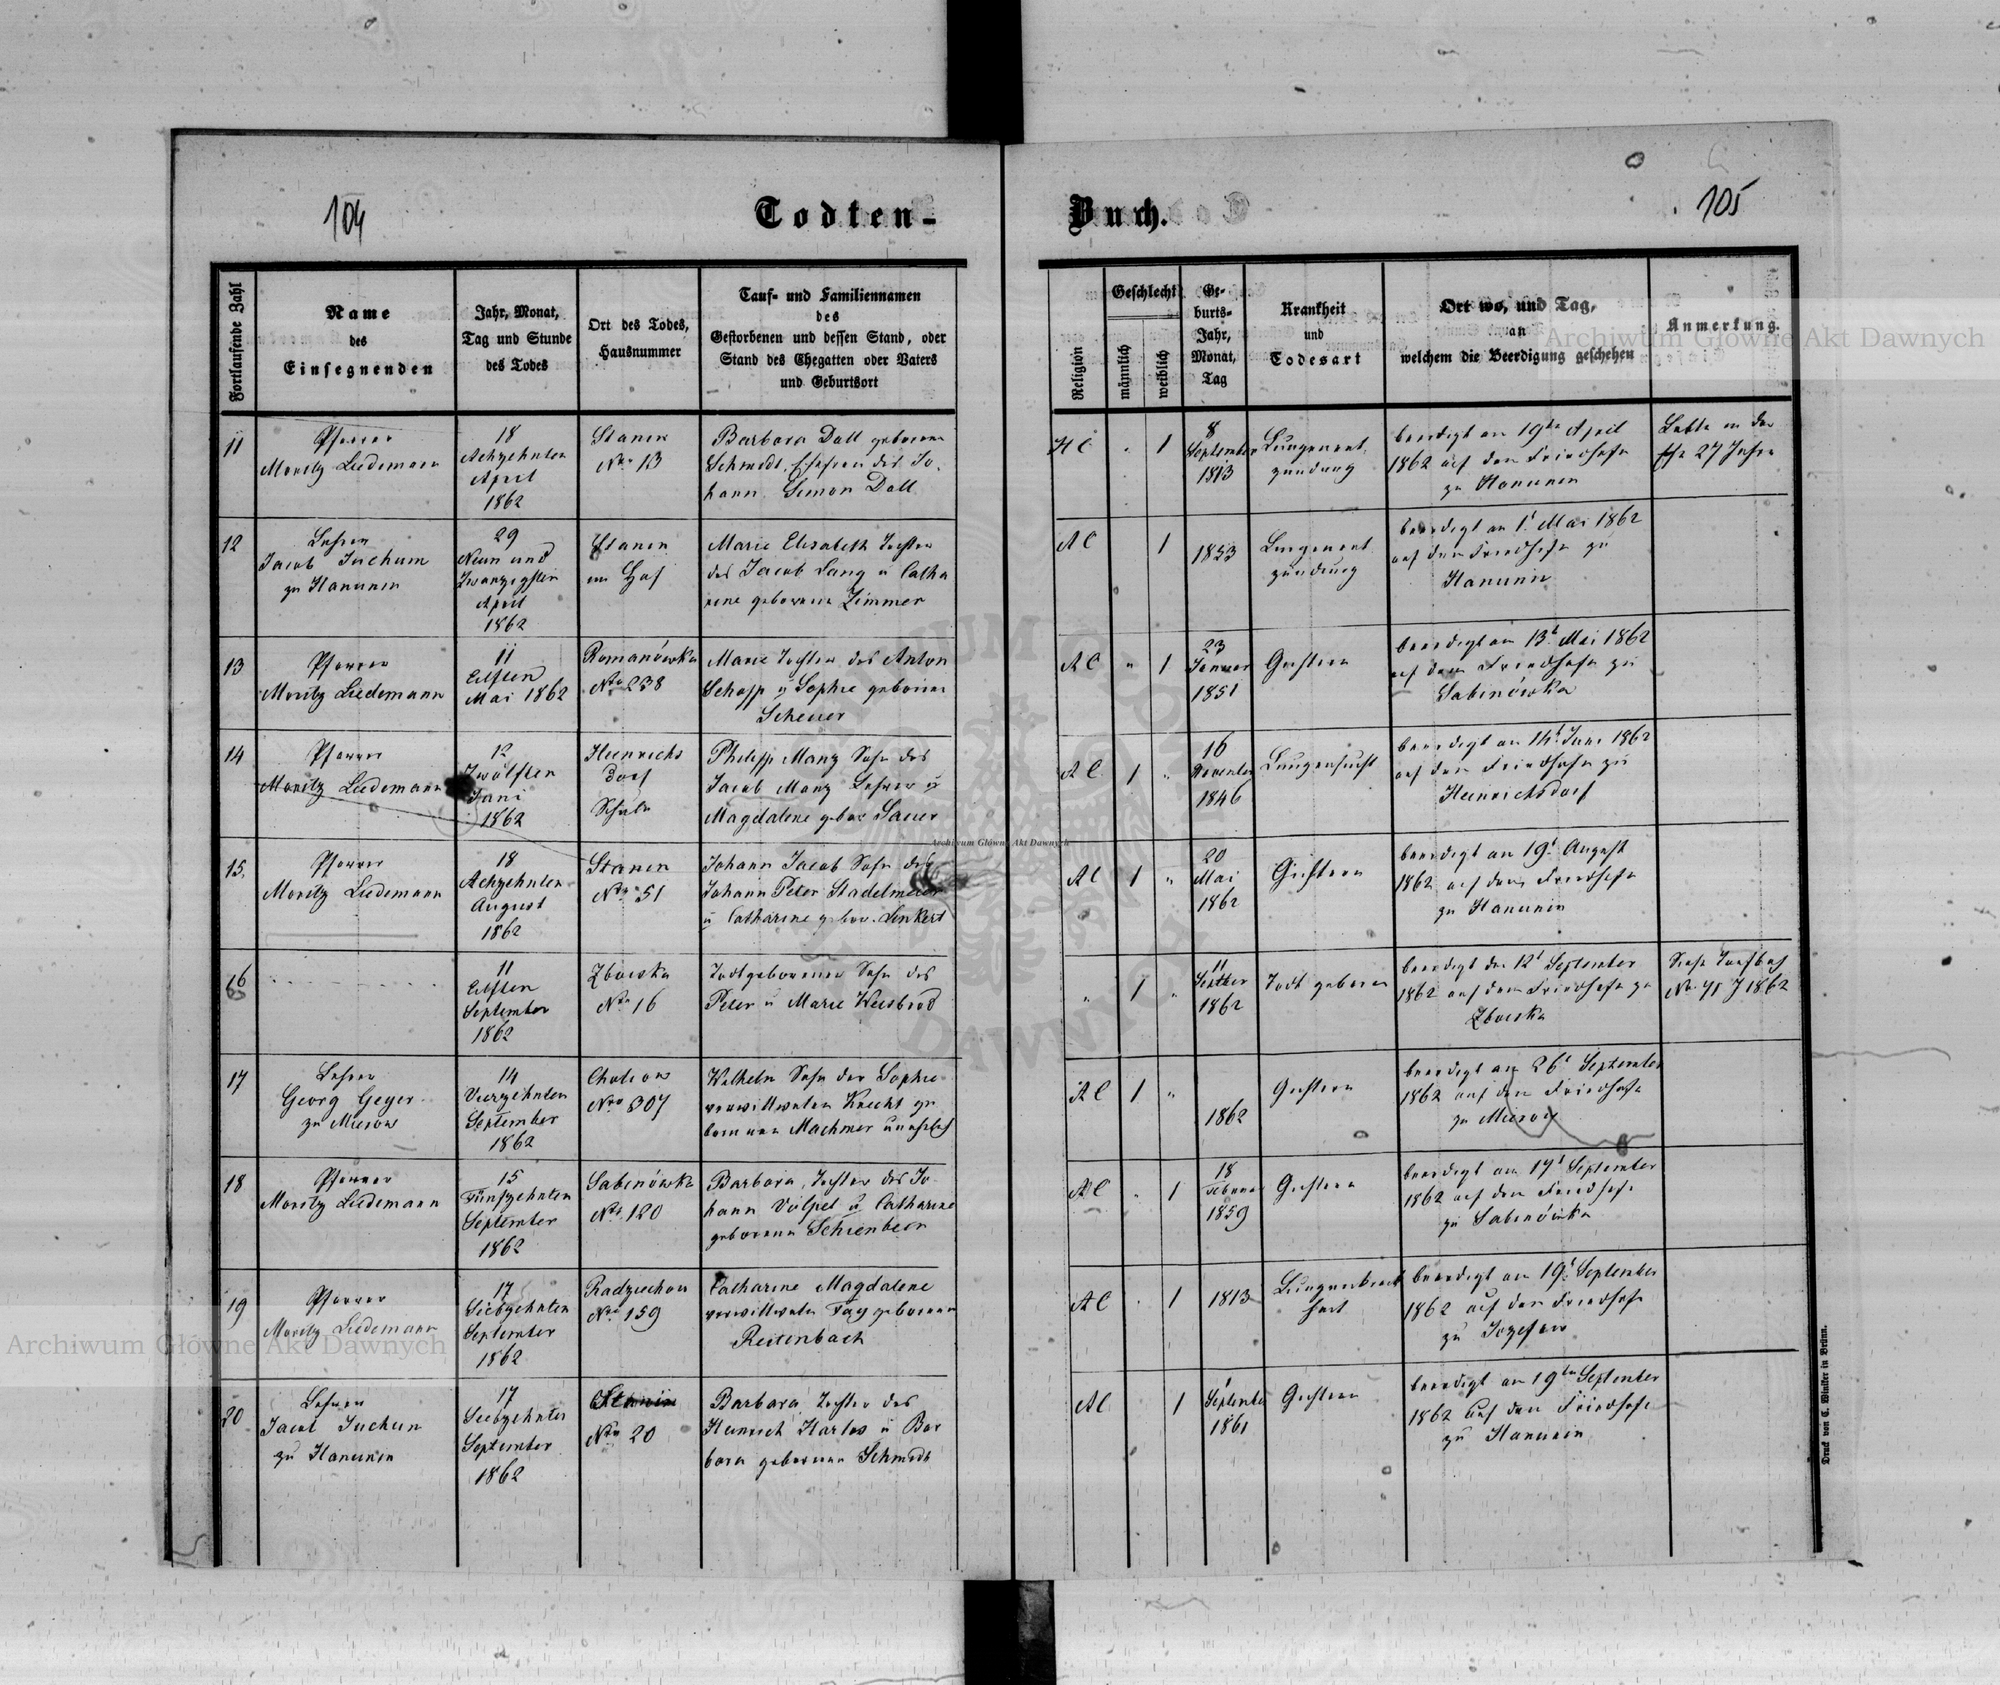 104
Todten-
Buch.
105
Fortlaufende Zahl
Name
des
Einsegnenden
Jahr, Monat,
Tag und Stunde
des Todes
Ort des Todes,
Hausnummer
Tauf- und Familiennamen
des
Gestorbenen und dessen Stand, oder
Stand des Ehegatten oder Vaters
und Geburtsort
Religion
Geschlecht
männlich
weiblich
Ge-
burts-
Jahr,
Monat,
Tag
Krankheit
und
Todesart
Ort wo, und Tag,
an
welchem die Beerdigung geschehen
Anmerkung.
11
Pfarrer
Moritz Liedemann
18
Achzehnten
April
1862
Stanin
Nro 13
Barbara Dall geborene
Schmidt, Ehefrau des Jo-
hann Simon Dall
HC
1
8
September
1813
Lungenent-
zündung
beerdigt am 19ten April
1862 auf dem Friedhofe
zu Hanunin
Lebte in der
Ehe 27 Jahre
12
Lehrer
Jacob Juchum
zu Hanunin
29
Neun und
Zwanzigsten
April
1862
Stanin
im Hof
Marie Elisabeth Tochter
des Jacob Lang u Catha
rine geborene Zimmer
AC
1
1853
Lungenent
zündung
beerdigt am 1t Mai 1862
auf dem Friedhofe zu
Hanunin
13
Pfarrer
Moritz Liedemann
11
Eilften
Mai 1862
Romanówka
Nro 238
Marie Tochter des Anton
Schapp u Sophie geborene
Scheuer
AC
"
1
23
Januar
1851
Gichtern
beerdigt am 13t Mai 1862
auf dem Friedhofe zu
Sabinówka
14
Pfarrer
Moritz Liedemann
12
Zwölften
Juni
1862
Heinrichs
dorf
Schule
Philipp Manz Sohn des
Jacob Manz Lehrer u
Magdalene gebor Sauer
AC
1
"
16
November
1846
Lungensucht
beerdigt am 14t Juni 1862
auf dem Friedhofe zu
Heinrichsdorf
15.
Pfarrer
Moritz Liedemann
18
Achzehnten
August
1862
Stanin
Nro 51
Johann Jacob Sohn des
Johann Peter Stadelmeier
u Catharine gebor. Linkert
AC
1
"
20
Mai
1862
Gichtern
beerdigt am 19t August
1862 auf dem Friedhofe
zu Hanunin
16
11
Eilften
September
1862
Zboiska
Nro 16
Todtgeborener Sohn des
Peter u Marie Weisbrod
"
1
"
11
Septber
1862
Todt geboren
beerdigt den 12t September
1862 auf dem Friedhofe zu
Zboiska
Siehe Taufbuch
17
Lehrer
Georg Geyer
zu Mierow
14
Vierzehnten
September
1862
Cholojow
Nro 307
Wilhelm Sohn der Sophie
verwittweten Knecht ge
borenen Machmer unehelich
AC
1
"
1862
Gichtern
beerdigt am 26t September
1862 auf dem Friedhofe
zu Mierow
18
Pfarrer
Moritz Liedemann
15
Fünfzehnten
September
1862
Sabinówka
Nro 120
Barbara, Tochter des Jo-
hann Völpel u Catharine
geborenen Schienbein
AC
1
18
Februar
1859
Gichtern
beerdigt am 17t September
1862 auf dem Friedhofe
zu Sabinówka
19
Pfarrer
Moritz Liedemann
17
Siebzehnten
September
1862
Radziechow
Nro 159
Catharine Magdalene
verwittwete Fay geborene
Reitenbach
AC
1
1813
beerdigt am 19t September
1862 auf dem Friedhofe
zu Jozefow
20
Lehrer
Jacob Juchum
zu Hanunin
17
Siebzehnten
September
1862
Stanin
Nro 20
Barbara, Tochter des
Heinrich Harlos u Bar
bara geborenen Schmidt
AC
1
September
1861
Gichtern
beerdigt am 19ten September
1862 auf dem Friedhofe
zu Hanunin
Druck von C. Winiker in Brünn.
Archiwum Główne Akt Dawnych
Archiwum Główne Akt Dawnych
Archiwum Główne Akt Dawnych